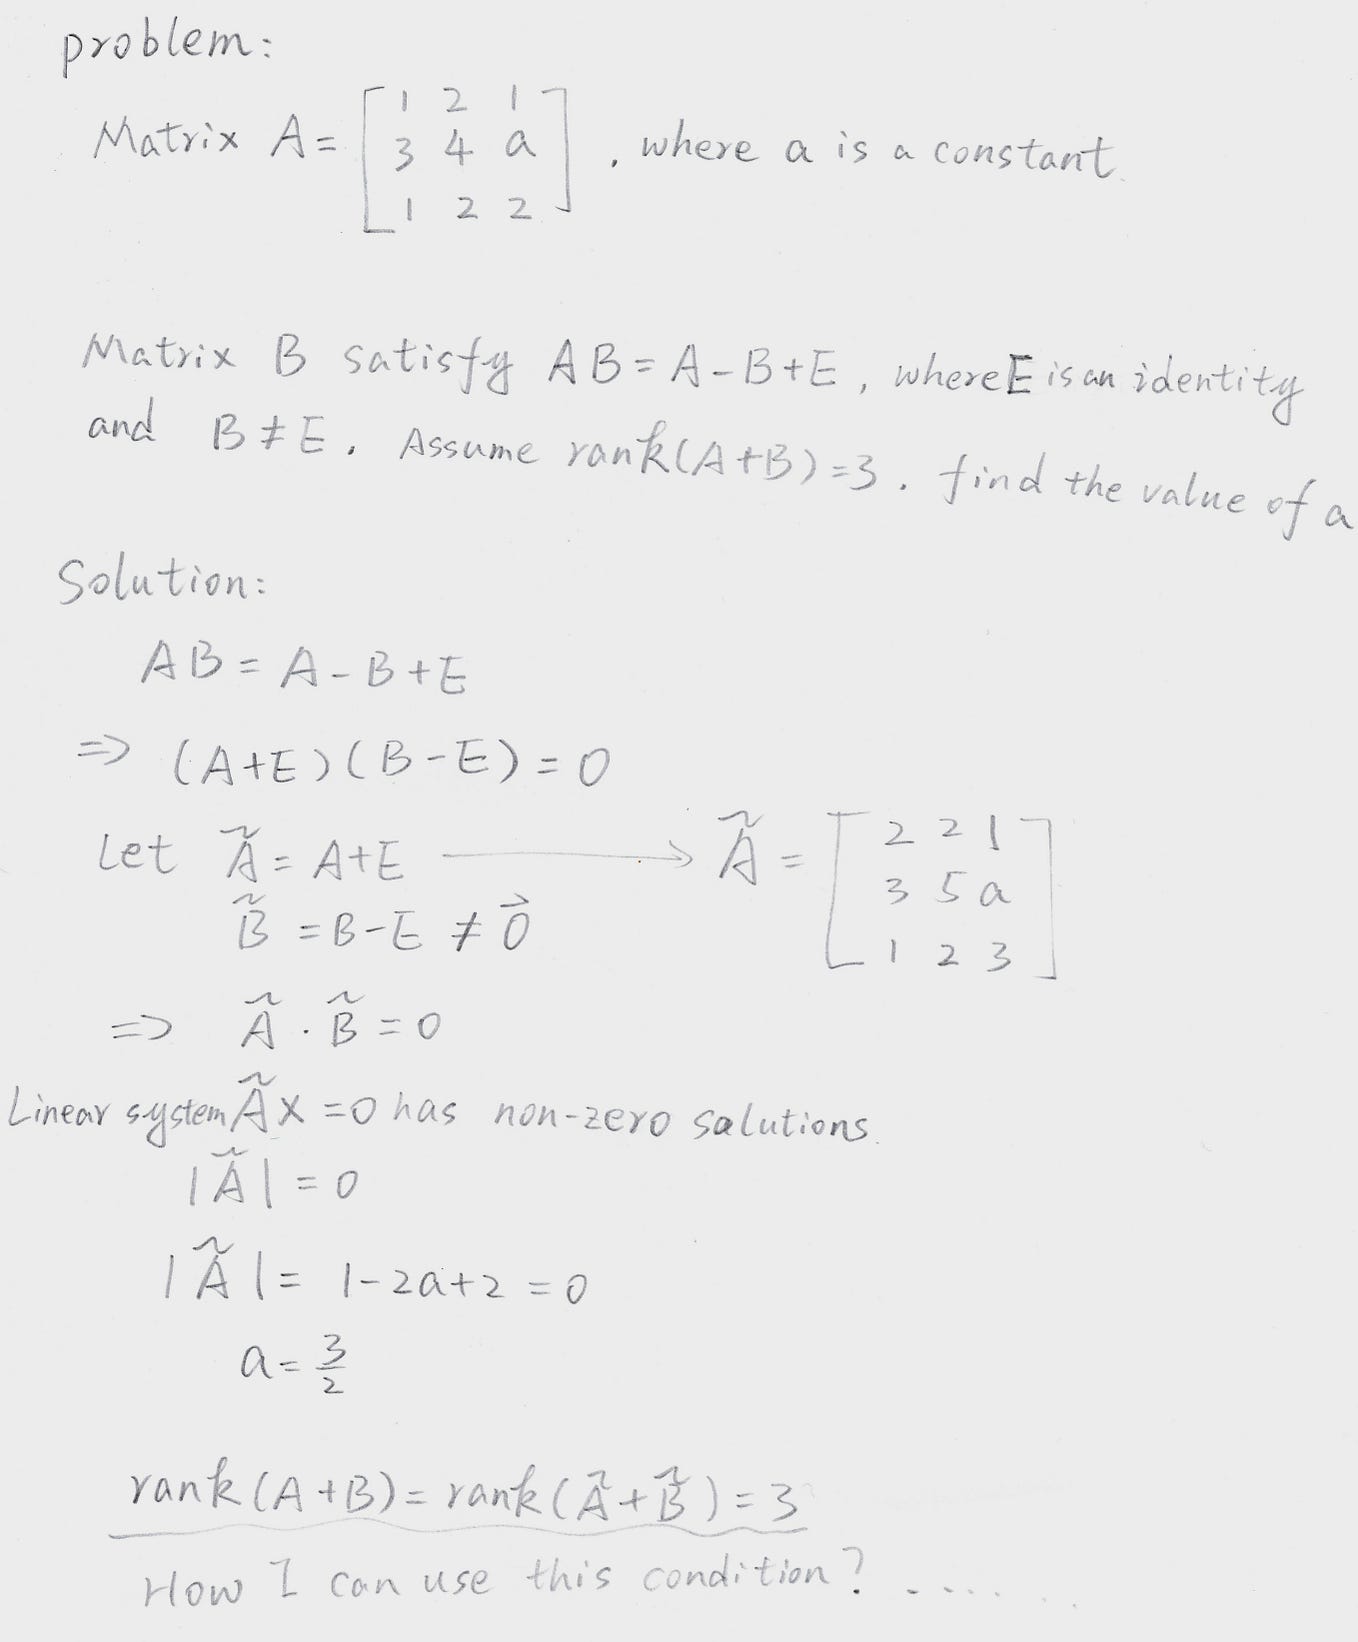 problem:
Matrix A = [ 1 2 1
3 4 a
1 2 2 ] , where a is a constant.
Matrix B satisfy AB = A - B + E , where E is an identity
and B ≠ E . Assume rank(A+B) = 3 . find the value of a
Solution:
AB = A - B + E
⇒ (A+E)(B-E) = 0
Let Ã = A+E ⟶ Ã = [ 2 2 1
3 5 a
1 2 3 ]
B̃ = B-E ≠ 0⃗
⇒ Ã · B̃ = 0
Linear system Ãx = 0 has non-zero salutions.
|Ã| = 0
|Ã| = 1-2a+2 = 0
a = 3/2
rank(A+B) = rank(Ã+B̃) = 3
How I can use this condition? .....